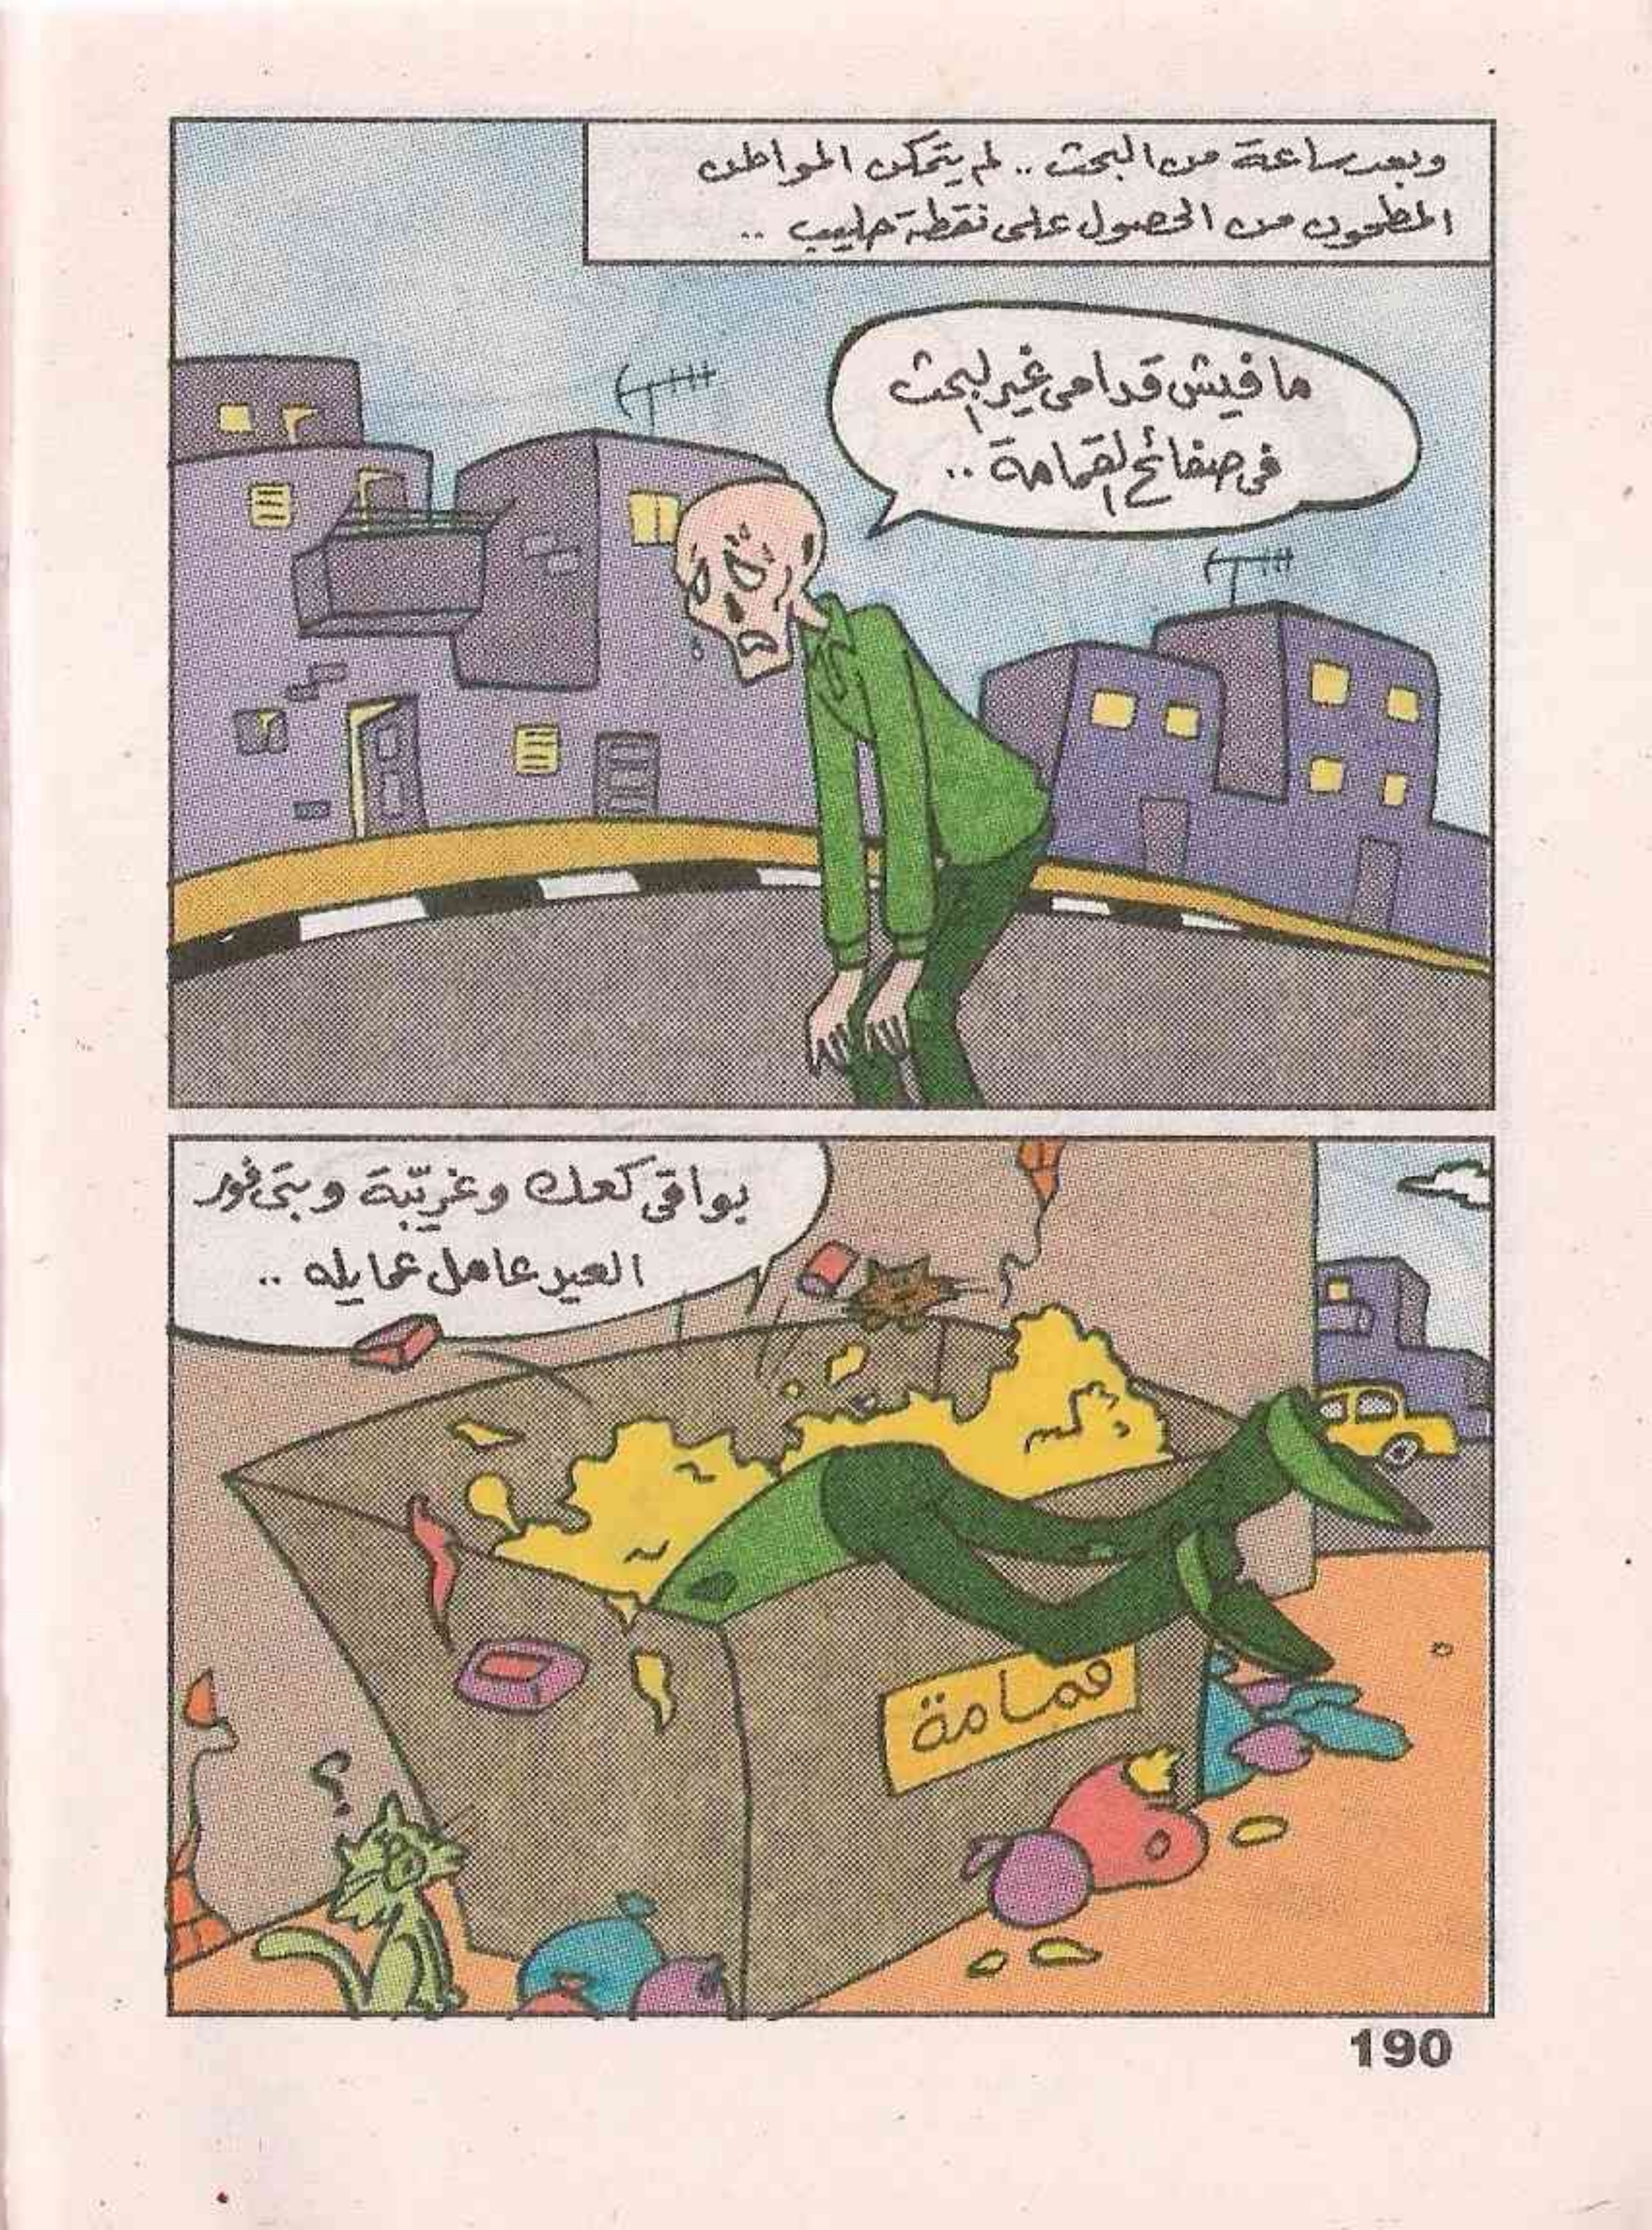 وبعد ساعة من البحث .. لم يتمكن المواطن
المطحون من الحصول على نقطة حليب ..
ما فيش قدامى غير البحث
فى صفائح القمامة ..
بواقى كعك وغريّبة وبتى فور
العيد عامل عمايله ..
قمامة
؟
190